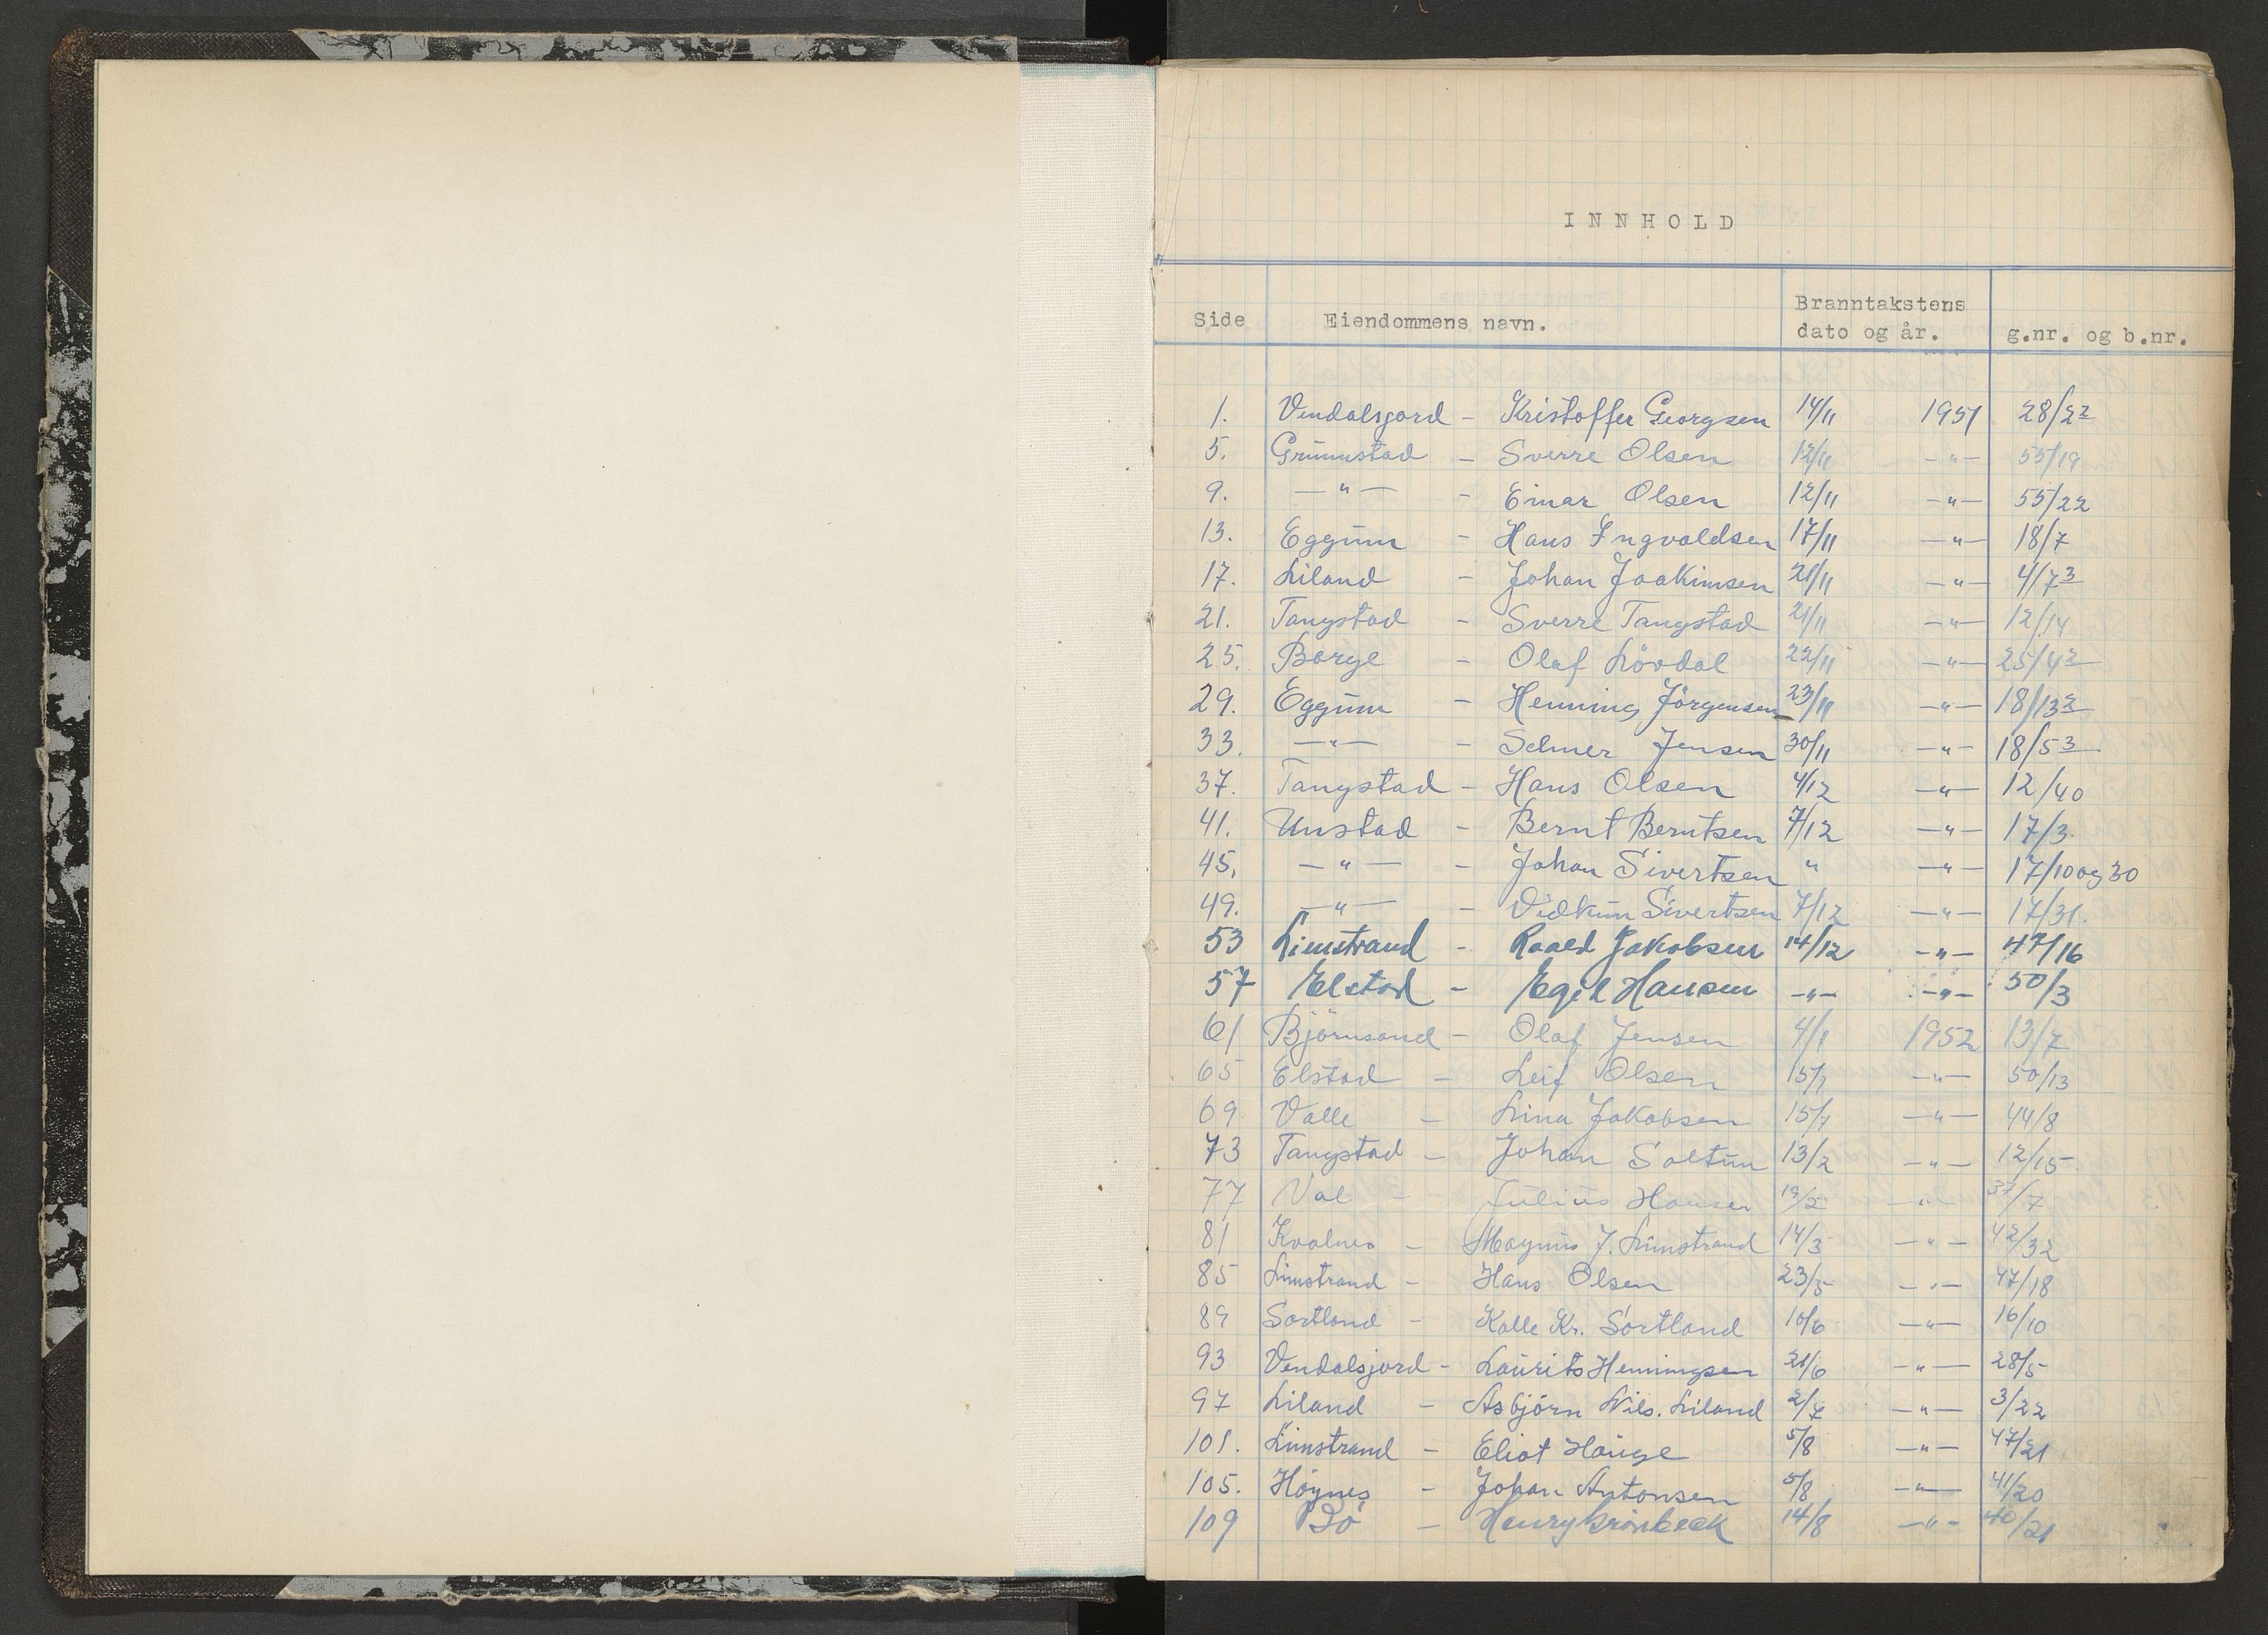 INNHOLD
Side Eiendommens navn. Branntakstens dato og år. g.nr. og b.nr.
1. Vendalsjord - Kristoffer Georgsen 14/11 1951 28/22
5. Grimmstad - Sverre Olsen 12/11 -"- 55/19
9. -"- - Einar Olsen 12/11 -"- 55/22
13. Eggum - Hans Ingvaldsen 17/11 -"- 18/7
17. Liland - Johan Joakimsen 21/11 -"- 4/73
21. Tangstad - Sverre Tangstad 21/11 -"- 12/14
25. Borge - Olaf Lövdal 22/11 -"- 25/42
29. Eggum - Henning Jörgensen 23/11 -"- 18/132
33. -"- - Selmer Jensen 30/11 -"- 18/53
37. Tangstad - Hans Olsen 4/12 -"- 12/40
41. Unstad - Bernt Berntsen 7/12 -"- 17/3.
45. -"- - Johan Sivertsen " -"- 17/10 og 30
49. -"- - Vidkun Sivertsen 7/12 -"- 17/31.
53 Limstrand - Roald Jakobsen 14/12 -"- 47/16
57 Elstad - Egil Hansen -"- -"- 50/3
61 Björnsand - Olaf Jensen 4/1 1952 13/7
65 Elstad - Leif Olsen 15/1 -"- 50/13
69 Valle - Lina Jakobsen 15/1 -"- 44/8
73 Tangstad - Johan Soltun 13/2 -"- 12/15
77 Val - Julius Hansen 19/2 -"- 37/7
81 Kvalnes - Magnus J. Limstrand 14/3 -"- 42/32
85 Limstrand - Hans Olsen 23/5 -"- 47/18
89 Sortland - Kalle Kr. Sortland 10/6 -"- 16/10
93 Vendalsjord - Laurits Henningsen 21/6 -"- 28/5
97 Liland - Asbjörn Nils. Liland 2/7 -"- 3/22
101. Limstrand - Eliot Hauge 5/8 -"- 47/21
105. Höynes - Johan Antonsen 5/8 -"- 41/20
109 Bö - Henry Grönbeck 14/8 -"- 40/21